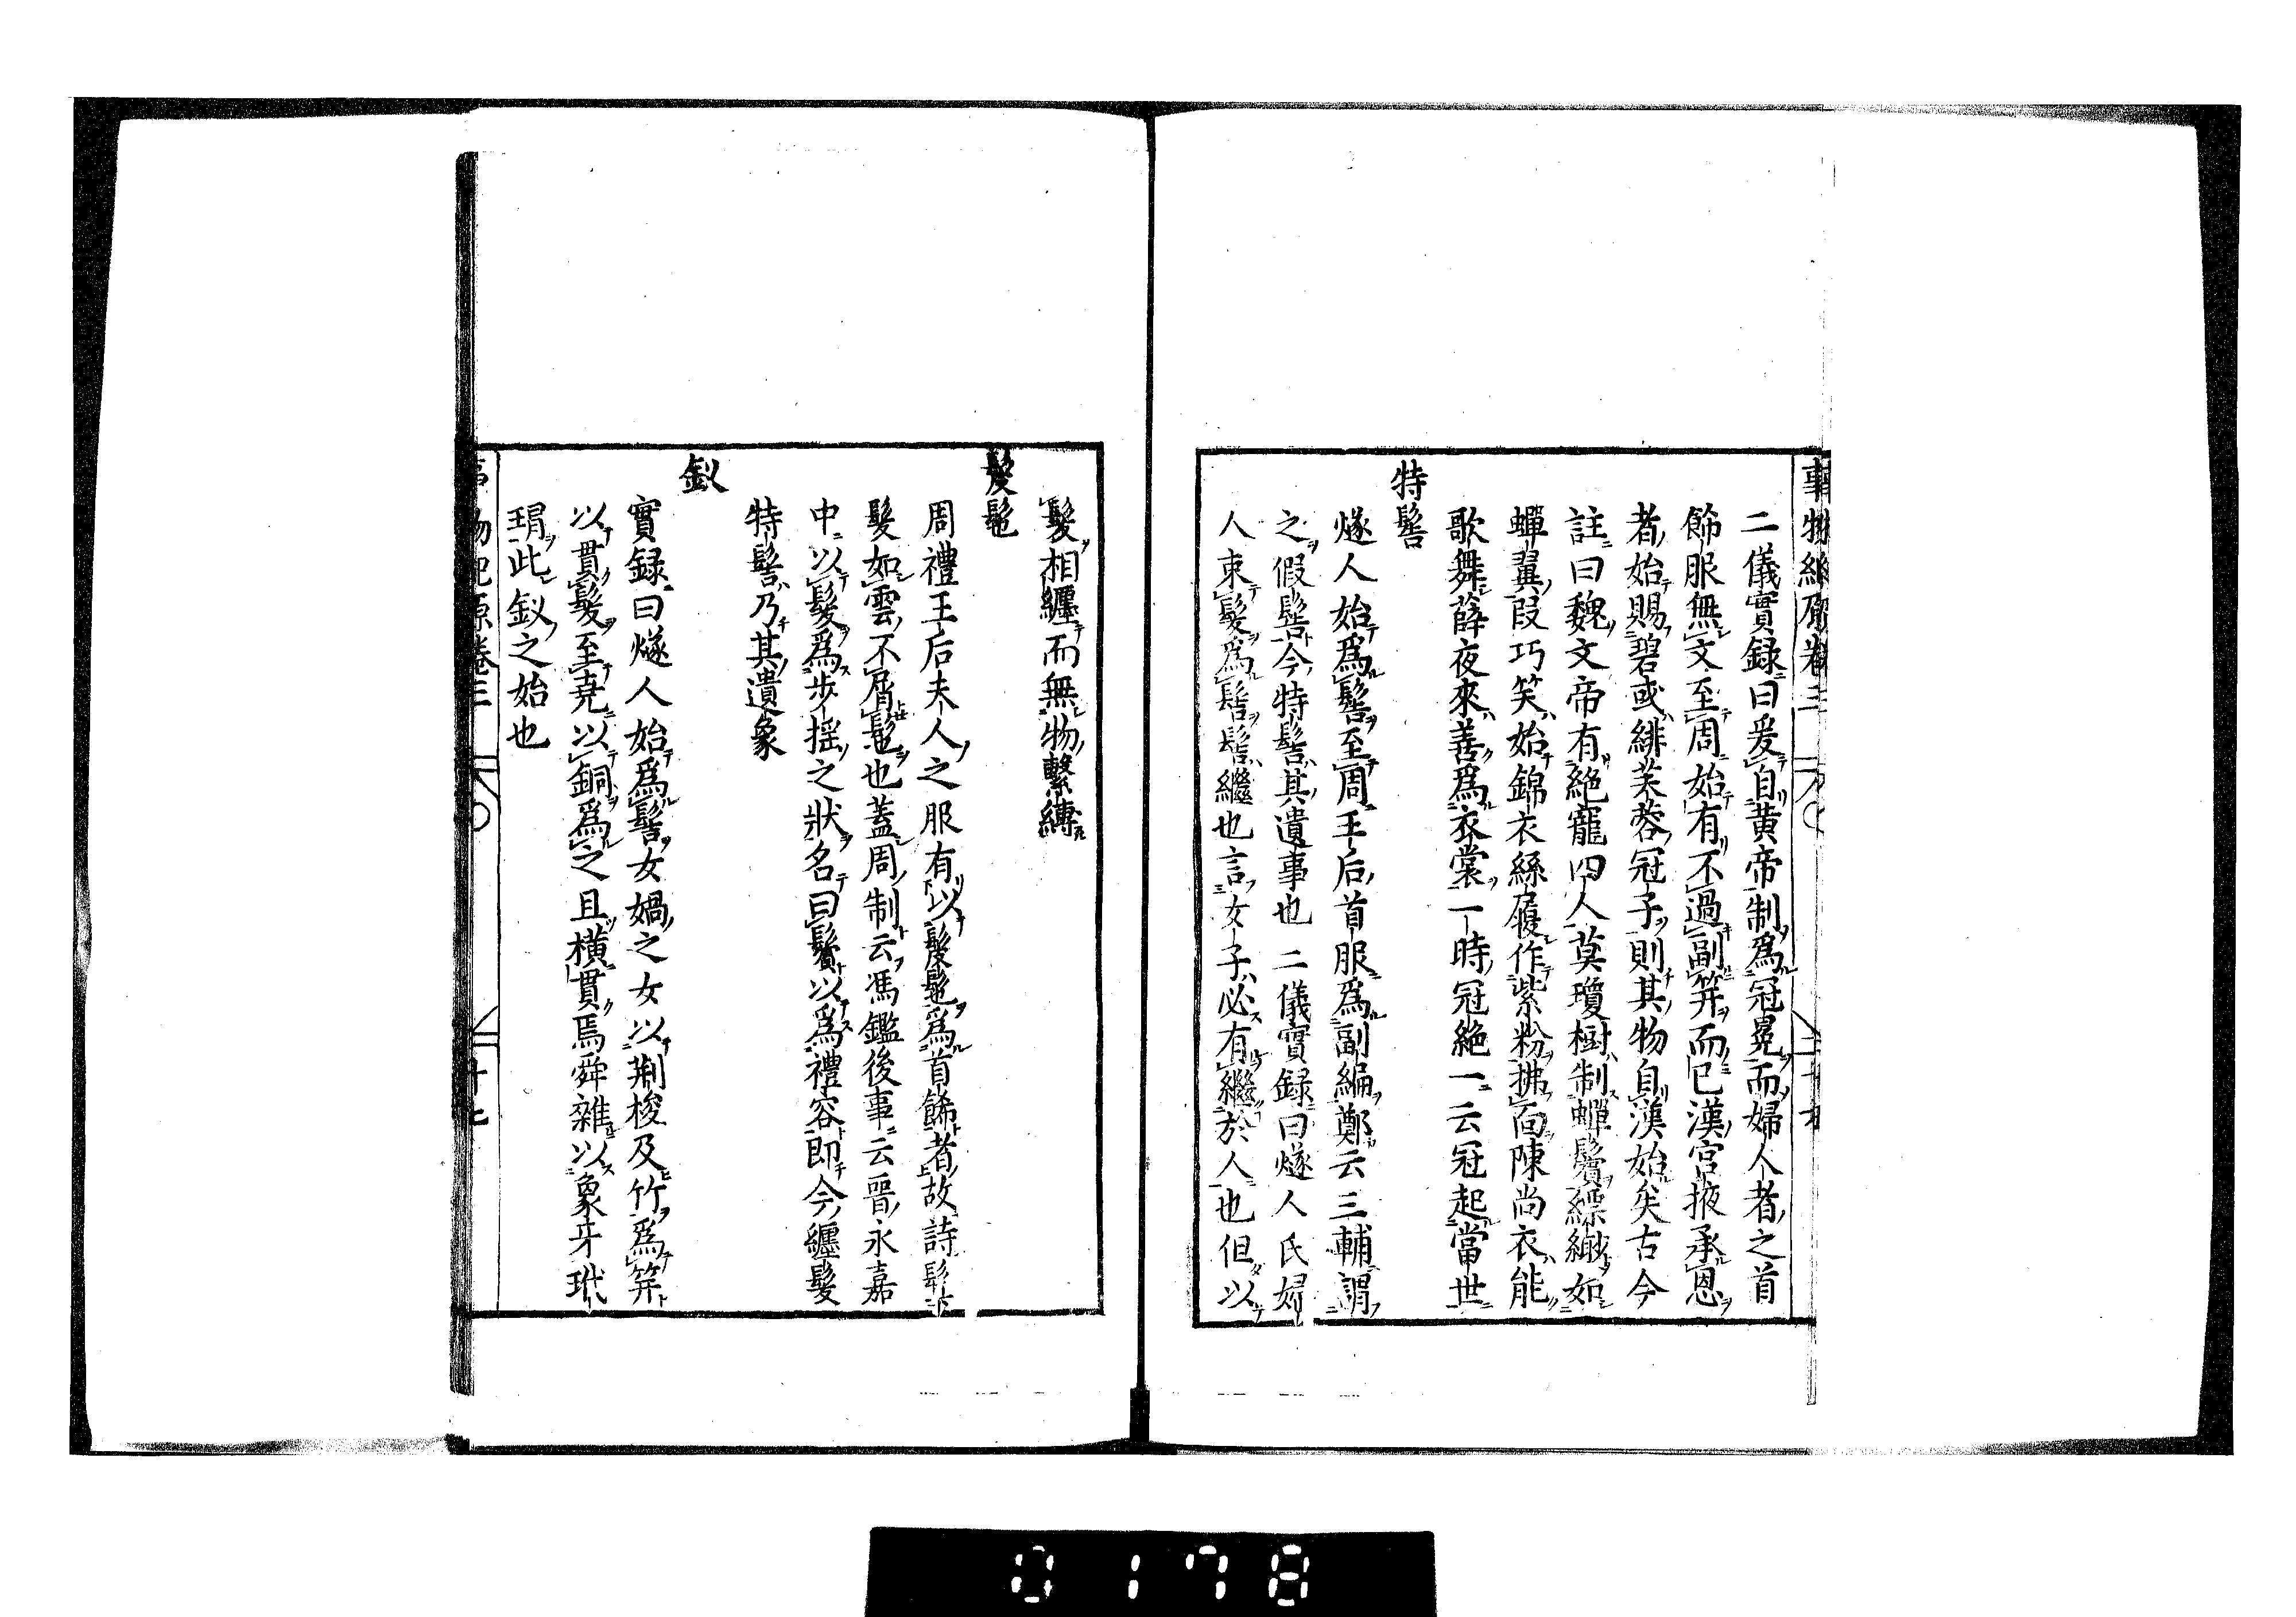 事物紀原卷三
二儀實録曰爰自黄帝制爲冠冕而婦人者之首
飾服無文至周始有不過副笄而已漢宫掖承恩
者始賜碧或緋芙蓉冠子則其物自漢始矣古今
註曰魏文帝有絶寵四人莫瓊樹制蟬鬢縹緲如
蟬翼段巧笑始錦衣絲履作紫粉拂面陳尚衣能
歌舞薛夜來善爲衣裳一時冠絶一云冠起當世
特髻
燧人始爲髻至周王后首服爲副編鄭云三輔謂
之假髻今特髻其遺事也 二儀實録曰燧人氏婦
人束髮爲髻髻繼也言女子必有繼於人也但以
髮相纒而無物繫縛
髲髢
周禮王后夫人之服有以髲髢爲首餙者故詩鬒
髮如雲不屑髢也蓋周制云馮鑑後事云晉永嘉
中以髮爲步揺之狀名曰鬢以爲禮容即今纒髮
特髻乃其遺象
釵
實録曰燧人始爲髻女媧之女以荆梭及竹爲笄
以貫髮至堯以銅爲之且横貫焉舜雜以象牙玳
瑁此釵之始也
事物紀原卷三
十七
0178